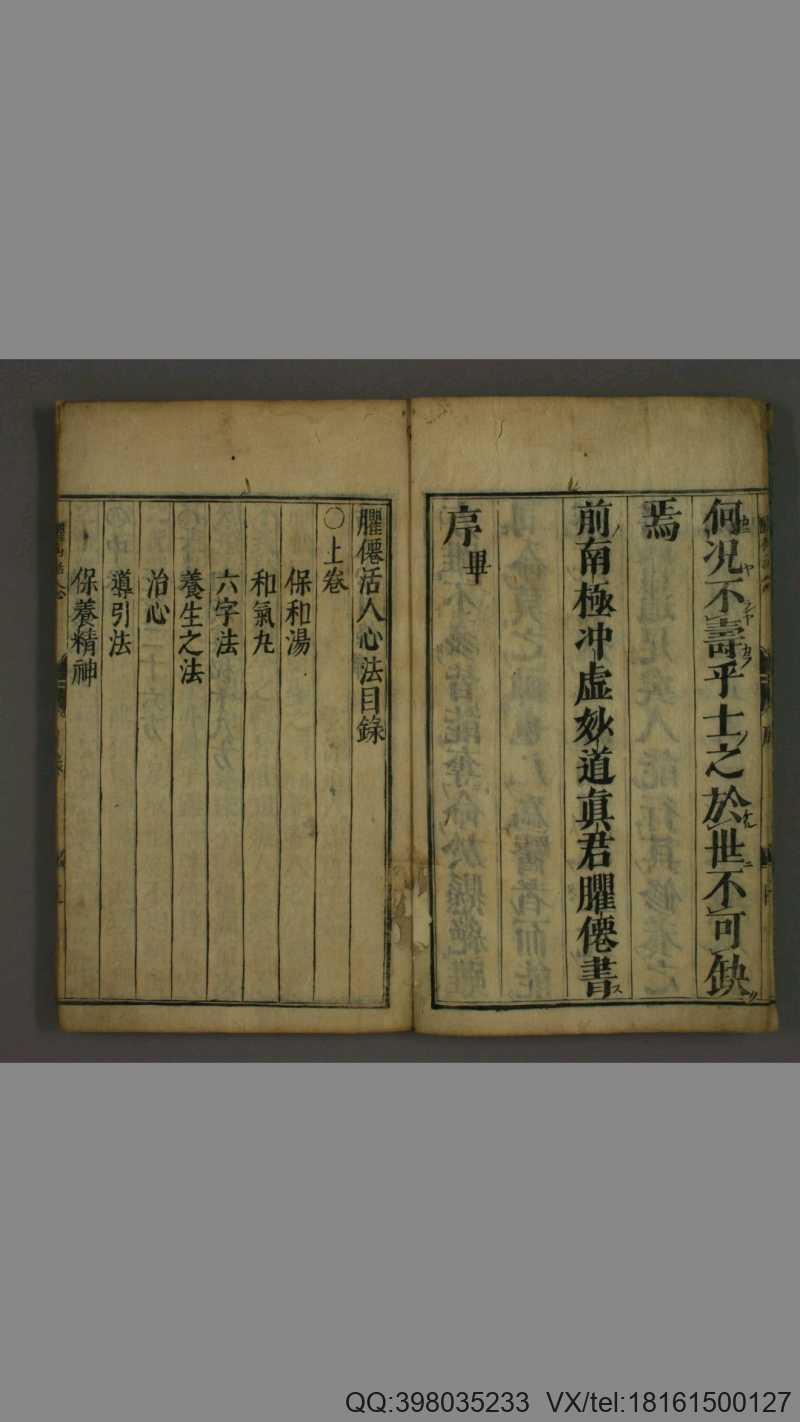 何況不壽乎士之於世不可缺
焉
前南極冲虛妙道真君臞僊書
序畢
臞僊活人心法目錄
○上卷
保和湯
和氣丸
六字法
養生之法
治心
導引法
保養精神
QQ:398035233 VX/tel:18161500127